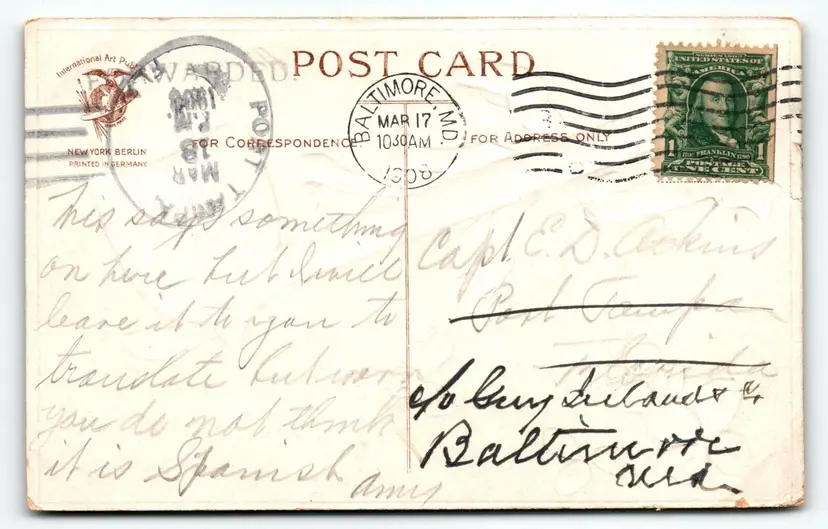 POST CARD
International Art Publ
NEW YORK BERLIN
PRINTED IN GERMANY
FORWARDED
PORT TAMPA
MAR
13
1908
FOR CORRESPONDENCE
BALTIMORE, MD.
MAR 17
1030AM
1908
FOR ADDRESS ONLY
SERIES 1902
UNITED STATES OF
AMERICA
FRANKLIN
1 POSTAGE 1
ONE CENT
This says something
on here but I will
leave it to you to
translate but
you do not think
it is Spanish
Amy
Capt. E. D. Adkins
Port Tampa
Florida
c/o Guy
Baltimore
Md.